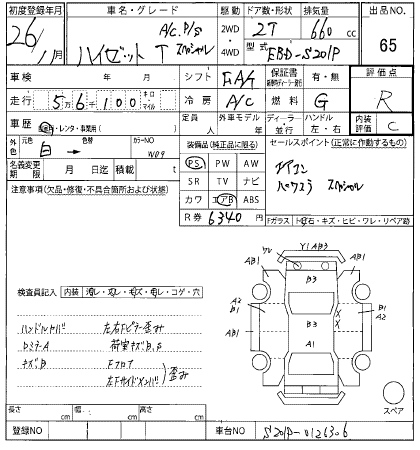 初度登録年月 車名・グレード 駆動 ドア数・形状 排気量 出品NO.
26/11月 ハイゼット T スペシャル A/C. P/S 2WD・4WD 2T 660cc 65
型式 EBD-S201P
車検 年 月 シフト FA4 保証書 有・無 評価点
走行 5万6千100 キロ マイル 冷房 A/C 燃料 G R
車歴 自家用・レンタ・事業用( ) 定員 人 外車モデル 年 ディーラー・並行 ハンドル 左・右 内装評価 C
外色 元色 白 → 色替 カラーNO W09 装備品(純正品に限る) セールスポイント(正常に作動するもの)
名義変更期限 月 日迄 積載 t PS PW AW エアコン
注意事項(欠品・修復・不具合箇所および状態) SR TV ナビ パワステ スペシャル
カワ エアB ABS
R券 6340 円
Fガラス 飛石・キズ・ヒビ・ワレ・リペア跡
ワレ Y1 AB3
AB1 AB1
B3
検査員記入 内装
A2 B1 B1 A2
ハンドル 左右Fピラー歪み
AB1 B3
A1
荷室キズB.P
キズB Fフロア
左Fサイドメンバ 歪み
長さ cm 幅 cm 高さ cm
スペア
登録NO 車台NO S201P-0126306